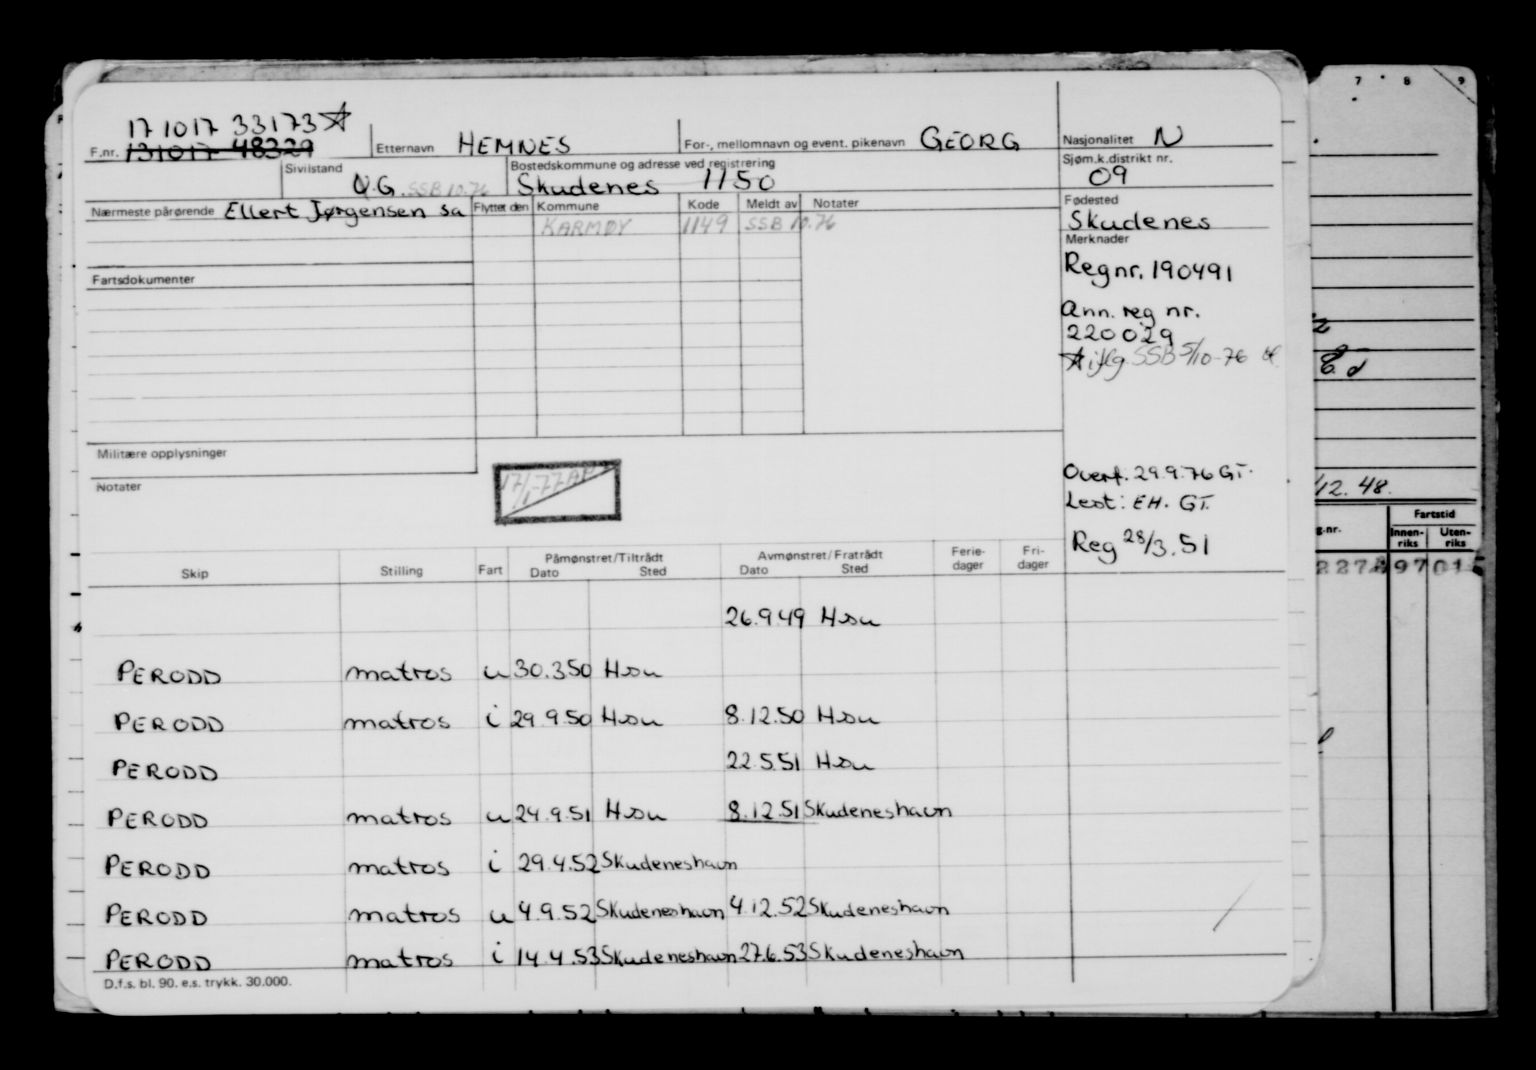 17 10 17 33173 ☆
F.nr. 131017 48329
Etternavn HEMNES
For-, mellomnavn og event. pikenavn GEORG
Nasjonalitet N
Sivilstand
U.G. SSB 10.76
Bostedskommune og adresse ved registrering
Skudenes 1150
Sjøm.k.distrikt nr.
09
Nærmeste pårørende Ellert Jørgensen sa
Flyttet den Kommune Kode Meldt av Notater
KARMØY 1149 SSB 10.76
Fødested
Skudenes
Merknader
Regnr. 190491
Ann. reg nr.
220029
☆ iflg. SSB 5/10-76
Fartsdokumenter
Militære opplysninger
Notater
17/1-77
Overf. 29.9.76 GT.
Lest: EH. GT.
Reg 28/3.51
Skip Stilling Fart Påmønstret/Tiltrådt Avmønstret/Fratrådt Ferie-dager Fri-dager
Dato Sted Dato Sted
26.9.49 H.su
PERODD matros u 30.3.50 H.su
PERODD matros i 29.9.50 H.su 8.12.50 H.su
PERODD 22.5.51 H.su
PERODD matros u 24.9.51 H.su 8.12.51 Skudeneshavn
PERODD matros i 29.4.52 Skudeneshavn
PERODD matros u 4.9.52 Skudeneshavn 4.12.52 Skudeneshavn
PERODD matros i 14.4.53 Skudeneshavn 27.6.53 Skudeneshavn
D.f.s. bl. 90. e.s. trykk. 30.000.
7 8 9
/12. 48.
Fartstid
g.nr. Innen-riks Uten-riks
97 015